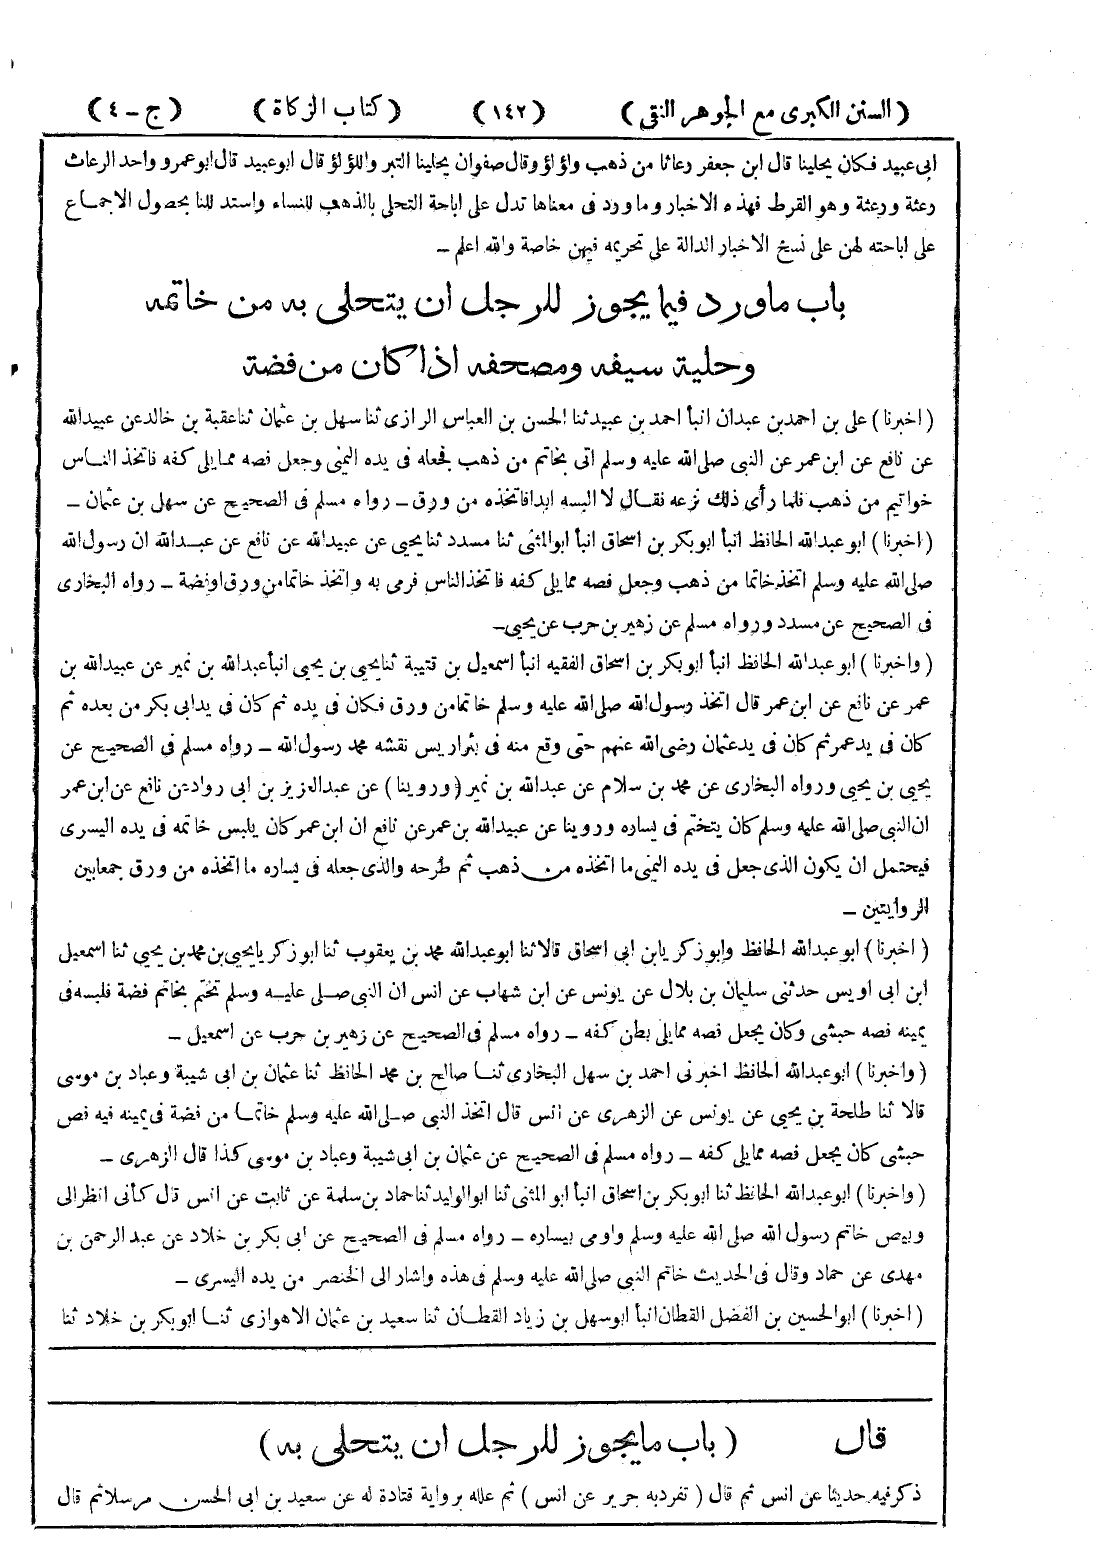 (السنن الكبرى مع الجوهر النقى) (١٤٢) (كتاب الزكاة) (ج-٤)
ابى عبيد فكان يحلينا قال ابن جعفر رعاثا من ذهب ولؤلؤ وقال صفوان يحلينا التبر واللؤلؤ قال ابو عبيد قال ابو عمرو واحد الرعاث
رعثة ورعثة وهو القرط فهذه الاخبار وما ورد فى معناها تدل على اباحة التحلى بالذهب للنساء واستدللنا بحصول الاجماع
على اباحته لهن على نسخ الاخبار الدالة على تحريمه فيهن خاصة والله اعلم -
باب ما ورد فيما يجوز للرجل ان يتحلى به من خاتمه
وحلية سيفه ومصحفه اذا كان من فضة
(اخبرنا) على بن احمد بن عبدان انبأ احمد بن عبيد ثنا الحسن بن العباس الرازى ثنا سهل بن عثمان ثنا عقبة بن خالد عن عبيد الله
عن نافع عن ابن عمر عن النبى صلى الله عليه وسلم اتى بخاتم من ذهب فجعله فى يده اليمنى وجعل فصه مما يلى كفه فاتخذ الناس
خواتيم من ذهب فلما رأى ذلك نزعه فقال لا البسه ابدا فاتخذه من ورق - رواه مسلم فى الصحيح عن سهل بن عثمان -
(اخبرنا) ابو عبد الله الحافظ انبأ ابو بكر بن اسحاق انبأ ابو المثنى ثنا مسدد ثنا يحيى عن عبيد الله عن نافع عن عبد الله ان رسول الله
صلى الله عليه وسلم اتخذ خاتما من ذهب وجعل فصه مما يلى كفه فاتخذ الناس فرمى به واتخذ خاتما من ورق او فضة - رواه البخارى
فى الصحيح عن مسدد ورواه مسلم عن زهير بن حرب عن يحيى -
(واخبرنا) ابو عبد الله الحافظ انبأ ابو بكر بن اسحاق الفقيه انبأ اسمعيل بن قتيبة ثنا يحيى بن يحيى انبأ عبد الله بن نمير عن عبيد الله بن
عمر عن نافع عن ابن عمر قال اتخذ رسول الله صلى الله عليه وسلم خاتما من ورق فكان فى يده ثم كان فى يد ابى بكر من بعده ثم
كان فى يد عمر ثم كان فى يد عثمان رضى الله عنهم حتى وقع منه فى بئر اريس نقشه محمد رسول الله - رواه مسلم فى الصحيح عن
يحيى بن يحيى ورواه البخارى عن محمد بن سلام عن عبد الله بن نمير (وروينا) عن عبد العزيز بن ابى رواد عن نافع عن ابن عمر
ان النبى صلى الله عليه وسلم كان يتختم فى يساره وروينا عن عبيد الله بن عمر عن نافع ان ابن عمر كان يلبس خاتمه فى يده اليسرى
فيحتمل ان يكون الذى جعل فى يده اليمنى ما اتخذه من ذهب ثم طرحه والذى جعله فى يساره ما اتخذه من ورق جمعا بين
الروايتين -
(اخبرنا) ابو عبد الله الحافظ وابو زكريا بن ابى اسحاق قالا ثنا ابو عبد الله محمد بن يعقوب ثنا ابو زكريا يحيى بن محمد بن يحيى ثنا اسمعيل
ابن ابى اويس حدثنى سليمان بن بلال عن يونس عن ابن شهاب عن انس ان النبى صلى الله عليه وسلم تختم بخاتم فضة فلبسه فى
يمينه فصه حبشى وكان يجعل فصه مما يلى بطن كفه - رواه مسلم فى الصحيح عن زهير بن حرب عن اسمعيل -
(واخبرنا) ابو عبد الله الحافظ اخبرنى احمد بن سهل البخارى ثنا صالح بن محمد الحافظ ثنا عثمان بن ابى شيبة وعباد بن موسى
قالا ثنا طلحة بن يحيى عن يونس عن الزهرى عن انس قال اتخذ النبى صلى الله عليه وسلم خاتما من فضة فى يمينه فيه فص
حبشى كان يجعل فصه مما يلى كفه - رواه مسلم فى الصحيح عن عثمان بن ابى شيبة وعباد بن موسى كذا قال الزهرى -
(واخبرنا) ابو عبد الله الحافظ ثنا ابو بكر بن اسحاق انبأ ابو المثنى ثنا ابو الوليد ثنا حماد بن سلمة عن ثابت عن انس قال كأنى انظر الى
وبيص خاتم رسول الله صلى الله عليه وسلم واومى بيساره - رواه مسلم فى الصحيح عن ابى بكر بن خلاد عن عبد الرحمن بن
مهدى عن حماد وقال فى الحديث خاتم النبى صلى الله عليه وسلم فى هذه واشار الى الخنصر من يده اليسرى -
(اخبرنا) ابو الحسين بن الفضل القطان انبأ ابو سهل بن زياد القطان ثنا سعيد بن عثمان الاهوازى ثنا ابو بكر بن خلاد ثنا
قال (باب ما يجوز للرجل ان يتحلى به)
ذكر فيه حديثا عن انس ثم قال (تفرد به جرير عن انس) ثم علله برواية قتادة له عن سعيد بن ابى الحسن مرسلا ثم قال